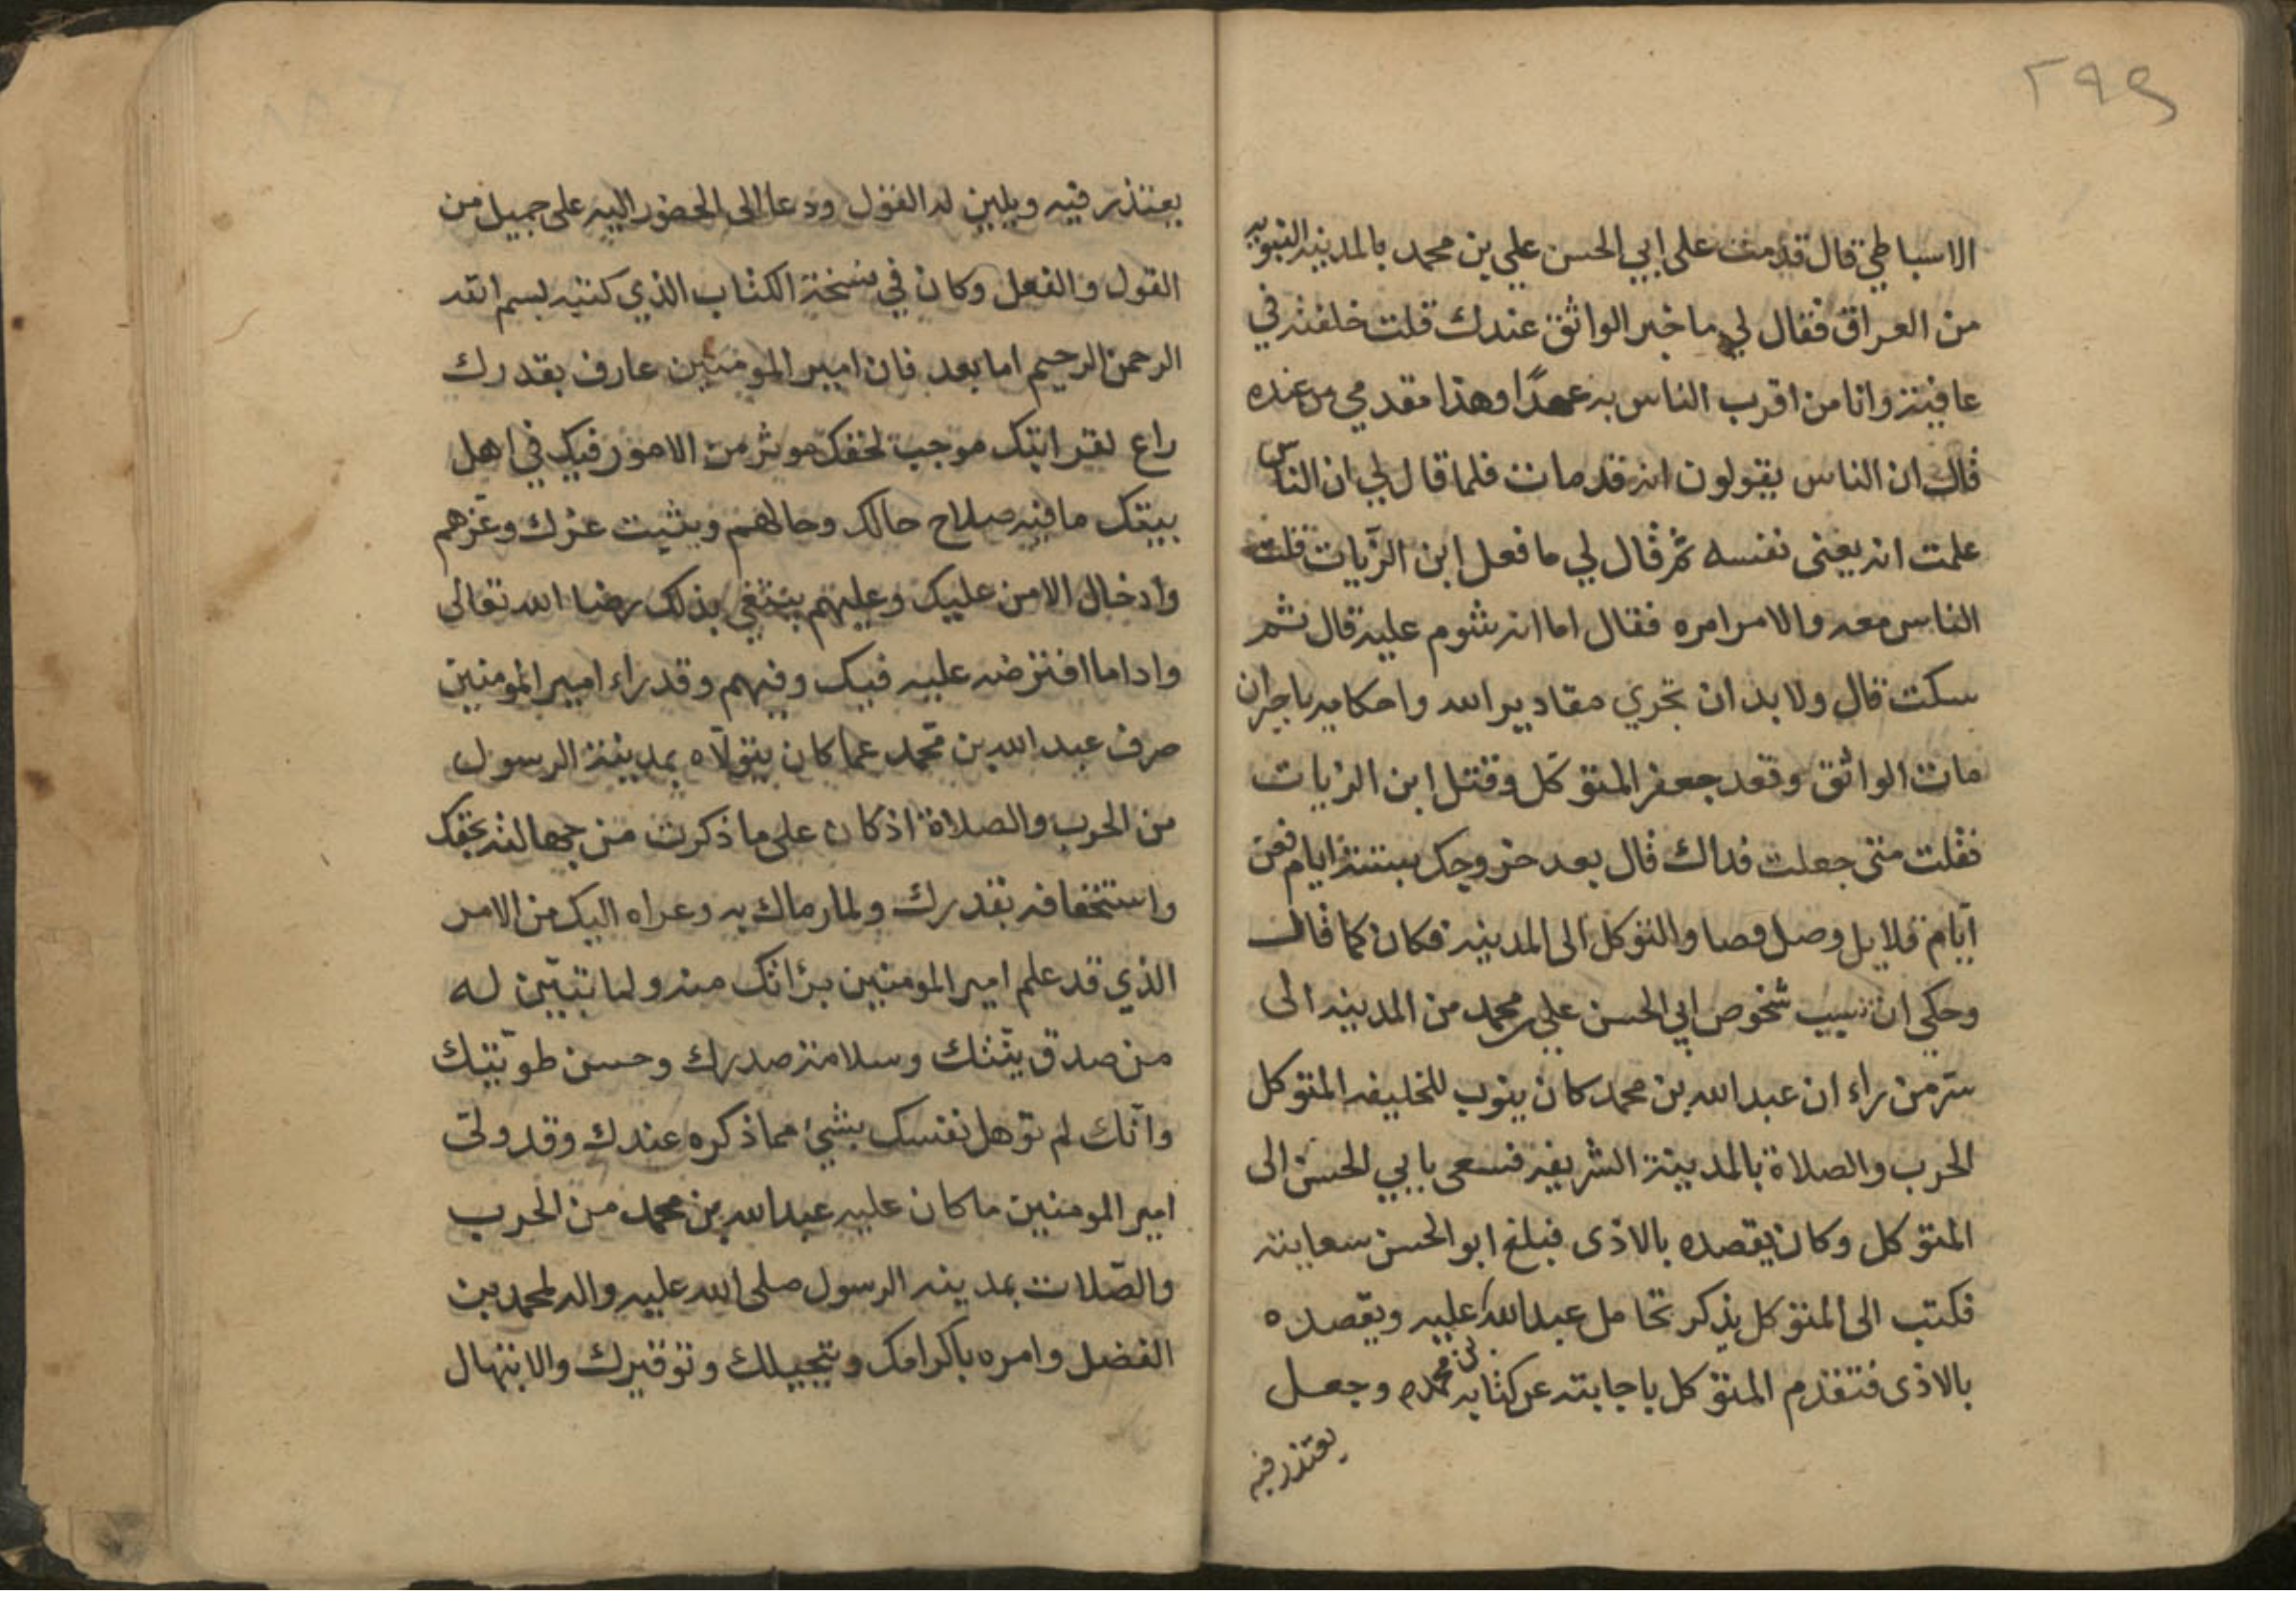 ٢٩٩
الاسباطي قال قدمت على ابي الحسن علي بن محمد بالمدينه النبويه
من العراق فقال لي ما خبر الواثق عندك قلت خلفته في
عافية وانا من اقرب الناس به عهدًا وهذا مقدمي من عنده
قال ان الناس يقولون انه قد مات فلما قال لي ان الناس
علمت انه يعني نفسه ثم قال لي ما فعل ابن الزيات قلت
الناس معه والامر امره فقال اما انه شوم عليه قال ثم
سكت قال ولا بد ان تجري مقادير الله واحكامه يا جبران
مات الواثق وقعد جعفر المتوكل وقتل ابن الزيات
فقلت متى جعلت فداك قال بعد خروجك بستة ايام فمن
ايّام قلايل وصل قصاد المتوكل الى المدينه فكان كما قال
وحكي ان سبب شخوص ابي الحسن علي بن محمد من المدينه الى
سرّ من راء ان عبد الله بن محمد كان ينوب للخليفه المتوكل
الحرب والصلاة بالمدينة الشريفه فسعى بابي الحسن الى
المتوكل وكان يقصده بالاذى فبلغ ابو الحسن سعايته
فكتب الى المتوكل يذكر تحامل عبد الله عليه ويقصده
بن محمد
بالاذى فتقدم المتوكل باجابته عن كتابه وجعل
يعتذر فيه
يعتذر فيه ويلين له القول ودعا الى الحضور اليه على جميل من
القول والفعل وكان في نسخة الكتاب الذي كتبه بسم الله
الرحمن الرحيم اما بعد فان امير المومنين عارف بقدرك
راع لقرابتك موجب لحقك موثر من الامور فيك في اهل
بيتك ما فيه صلاح حالك وحالهم ويثبت عزك وعزهم
وادخال الامن عليك وعليهم يبتغي بذلك رضا الله تعالى
وادا ما افترضه عليه فيك وفيهم وقد راء امير المومنين
صرف عبد الله بن محمد عما كان يتولاه بمدينة الرسول
من الحرب والصلاة اذ كان على ما ذكرت من جهالته بحقك
واستخفافه بقدرك ولما رماك به وعزاه اليك من الامر
الذي قد علم امير المومنين برأتك منه ولما تبيّن له
من صدق نيّتك وسلامة صدرك وحسن طويّتك
وانّك لم توهل نفسك بشيء مما ذكره عندك وقد ولى
امير المومنين ما كان عليه عبد الله بن محمد من الحرب
والصّلات بمدينه الرسول صلى الله عليه واله لمحمد بن
الفضل وامره باكرامك وتبجيلك وتوقيرك والانتهال